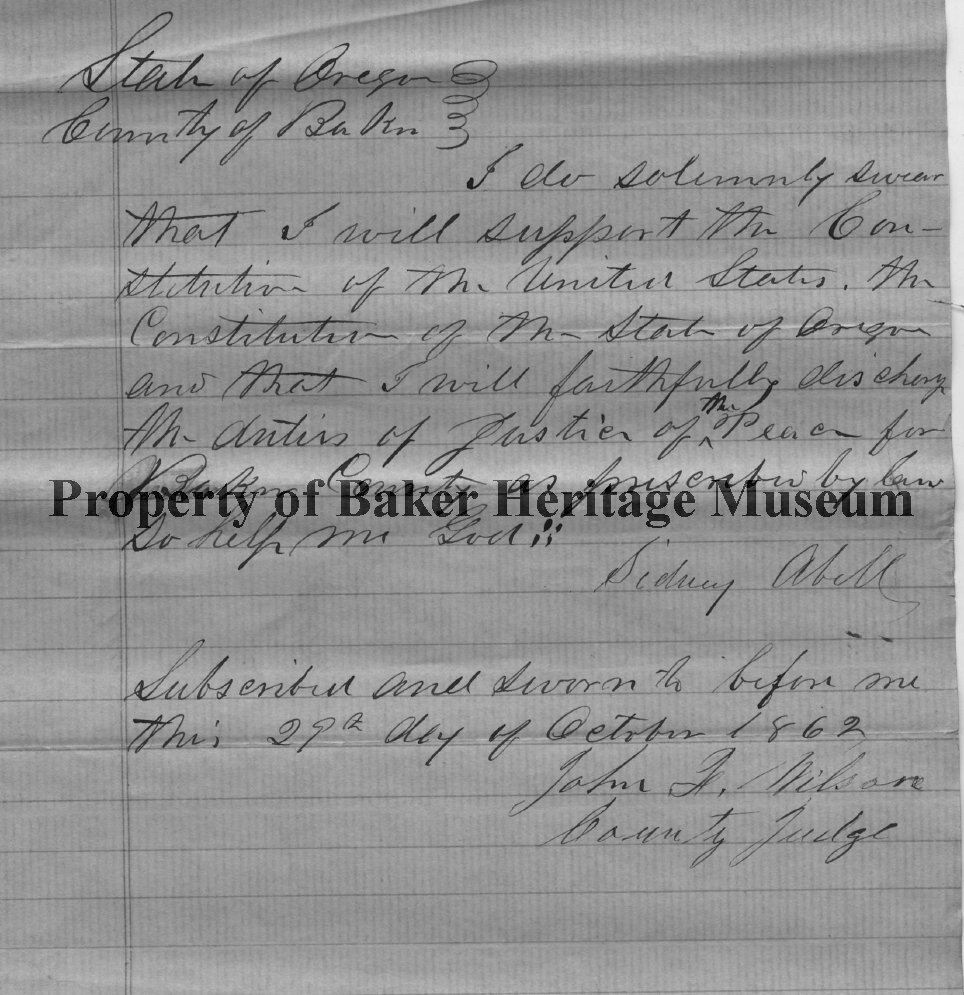 State of Oregon
County of Baker
I do solemnly swear
that I will support the Con-
stitution of the United States. the
Constitution of the State of Oregon
and that I will faithfully discharge
the duties of Justice of the Peace for
Baker County as prescribed by law
Property of Baker Heritage Museum
So help me God!!
Sidney Abell
Subscribed and sworn to before me
this 29th day of October 1862
John F. Wilson
County Judge